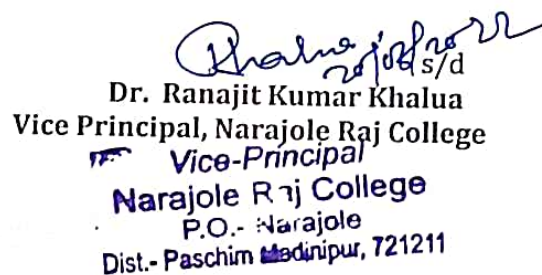 Khalua 20/06/2022
s/d
Dr. Ranajit Kumar Khalua
Vice Principal, Narajole Raj College
Vice-Principal
Narajole Raj College
P.O.- Narajole
Dist.- Paschim Medinipur, 721211